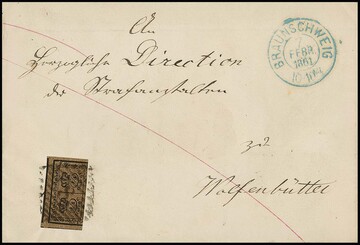 An
Herzogliche Direction
der Strafanstalten
zu
Wolfenbüttel
BRAUNSCHWEIG
FEBR
1861